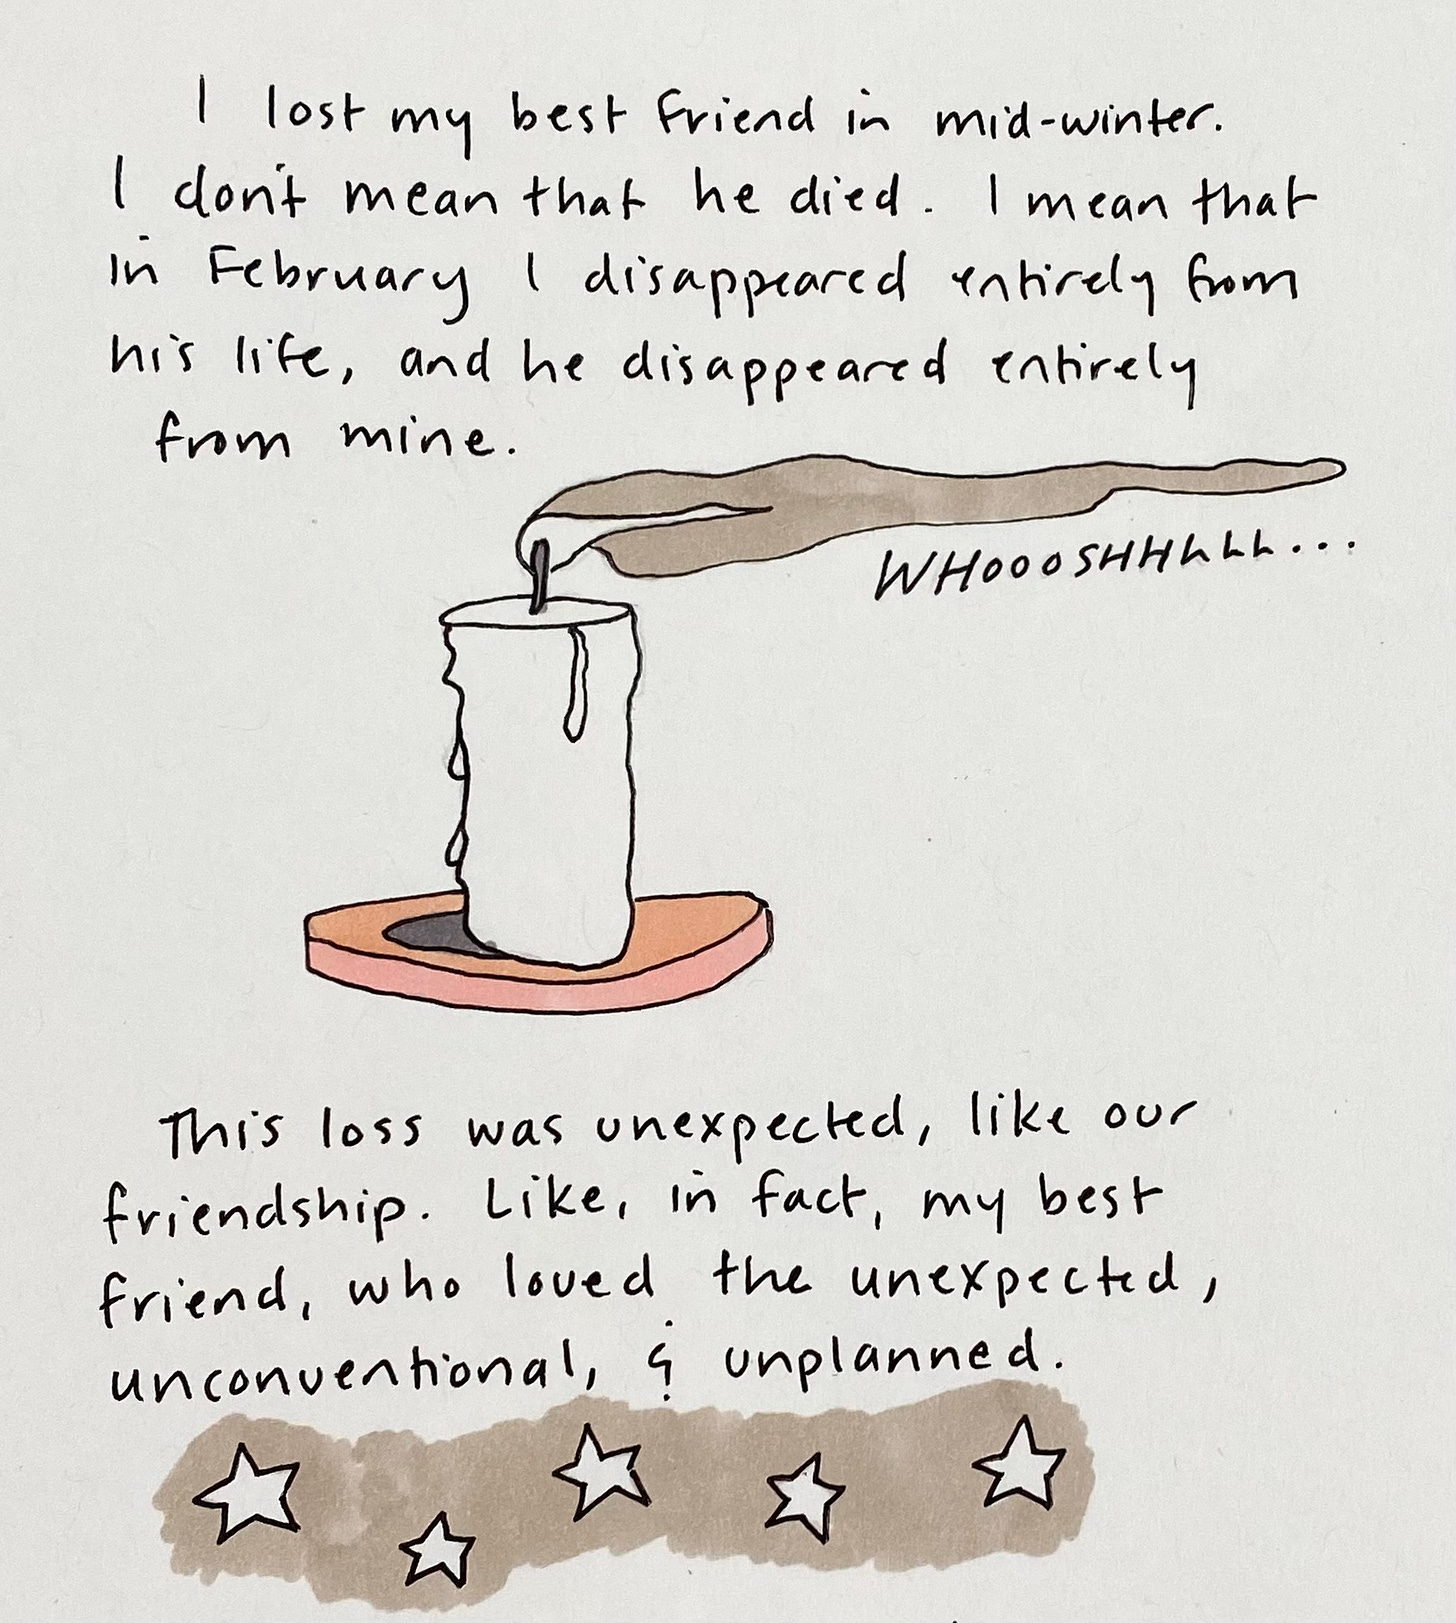 I lost my best friend in mid-winter.
I don't mean that he died. I mean that
in February I disappeared entirely from
his life, and he disappeared entirely
from mine.
WHOOOSHHHhhh...
This loss was unexpected, like our
friendship. Like, in fact, my best
friend, who loved the unexpected,
unconventional, & unplanned.